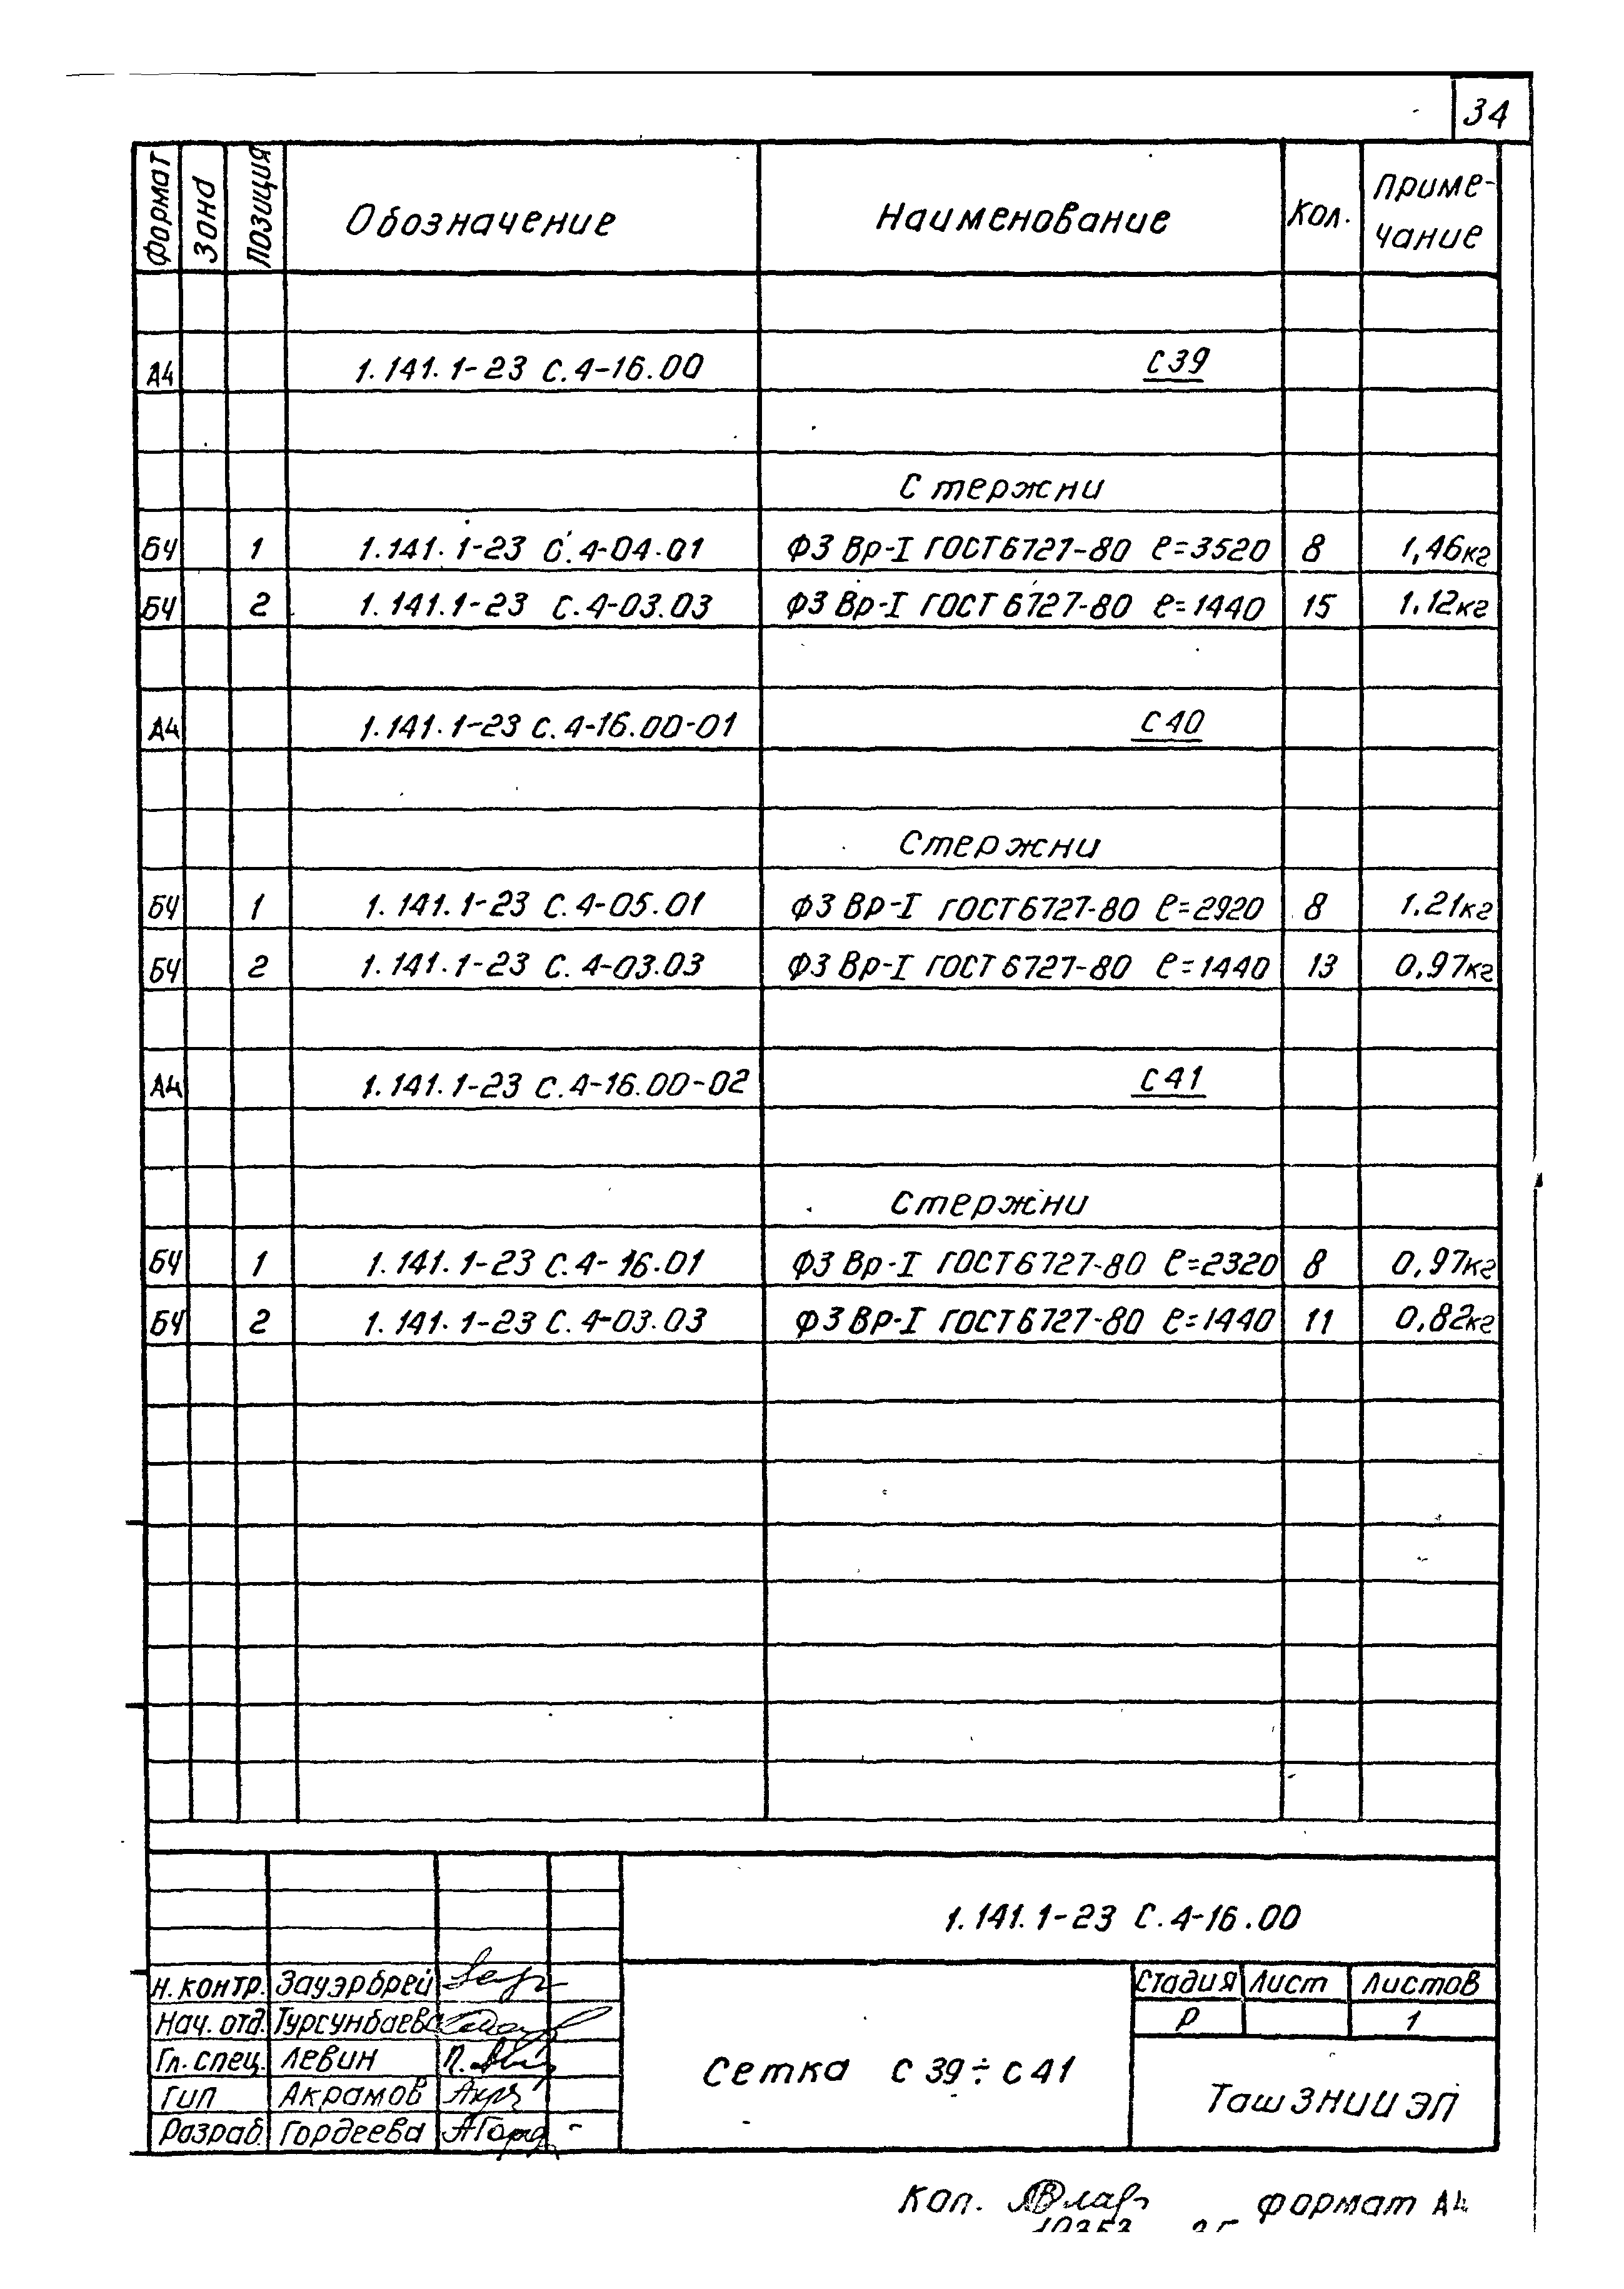 34
Формат Зона Позиция Обозначение Наименование Кол. Приме-
чание
А4 1.141.1-23 С.4-16.00 С39
Стержни
БЧ 1 1.141.1-23 С.4-04.01 Ф3 Вр-I ГОСТ6727-80 ℓ=3520 8 1,46кг
БЧ 2 1.141.1-23 С.4-03.03 Ф3 Вр-I ГОСТ6727-80 ℓ=1440 15 1.12кг
А4 1.141.1-23 С.4-16.00-01 С40
Стержни
БЧ 1 1.141.1-23 С.4-05.01 Ф3 Вр-I ГОСТ6727-80 ℓ=2920 8 1.21кг
БЧ 2 1.141.1-23 С.4-03.03 Ф3 Вр-I ГОСТ6727-80 ℓ=1440 13 0,97кг
А4 1.141.1-23 С.4-16.00-02 С41
Стержни
БЧ 1 1.141.1-23 С.4-16.01 Ф3 Вр-I ГОСТ6727-80 ℓ=2320 8 0,97кг
БЧ 2 1.141.1-23 С.4-03.03 Ф3 Вр-I ГОСТ6727-80 ℓ=1440 11 0,82кг
1.141.1-23 С.4-16.00
Н.контр. Зауэрбрей
Нач. отд. Турсунбаева
Гл. спец. Левин
ГИП Акрамов
Разраб. Гордеева
Сетка С39÷С41
Стадия Лист Листов
Р 1
ТашЗНИИЭП
Коп. формат А4